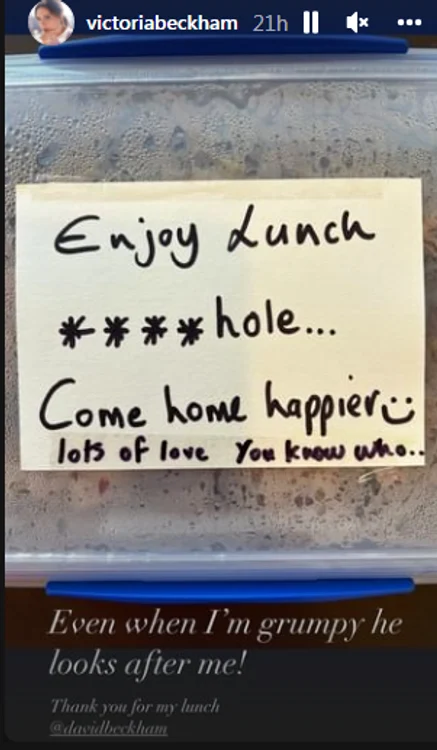 victoriabeckham 21h
Enjoy Lunch
****hole...
Come home happier
lots of love You know who..
Even when I'm grumpy he
looks after me!
Thank you for my lunch
@davidbeckham